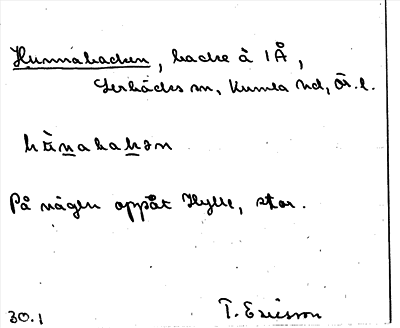 Hunnabacken, backe å 1Å,
Lerbäcks sn, Kumla hd, Ör. l.
På vägen oppåt Hylle, stor.
30.1 T. Ericsson